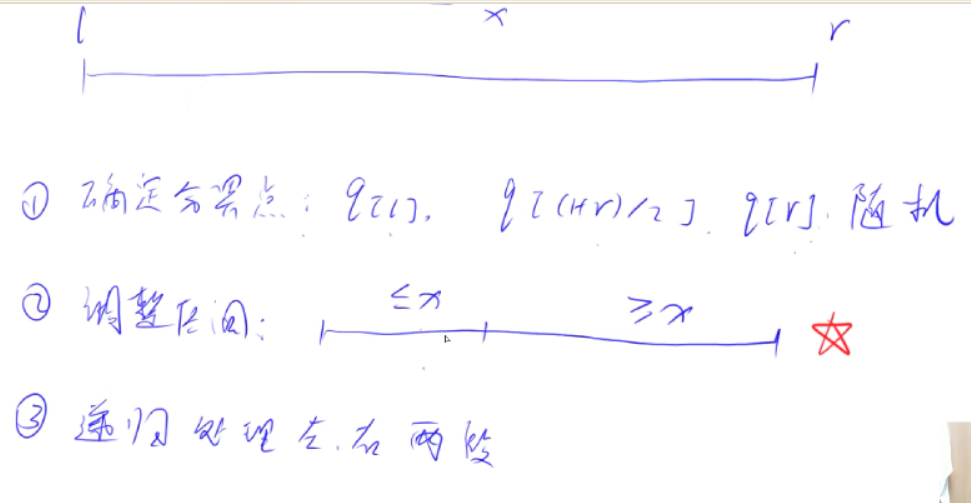 l x r
① 确定分界点：q[l], q[(l+r)/2], q[r], 随机
② 调整区间：≤x ≥x
③ 递归处理左、右两段